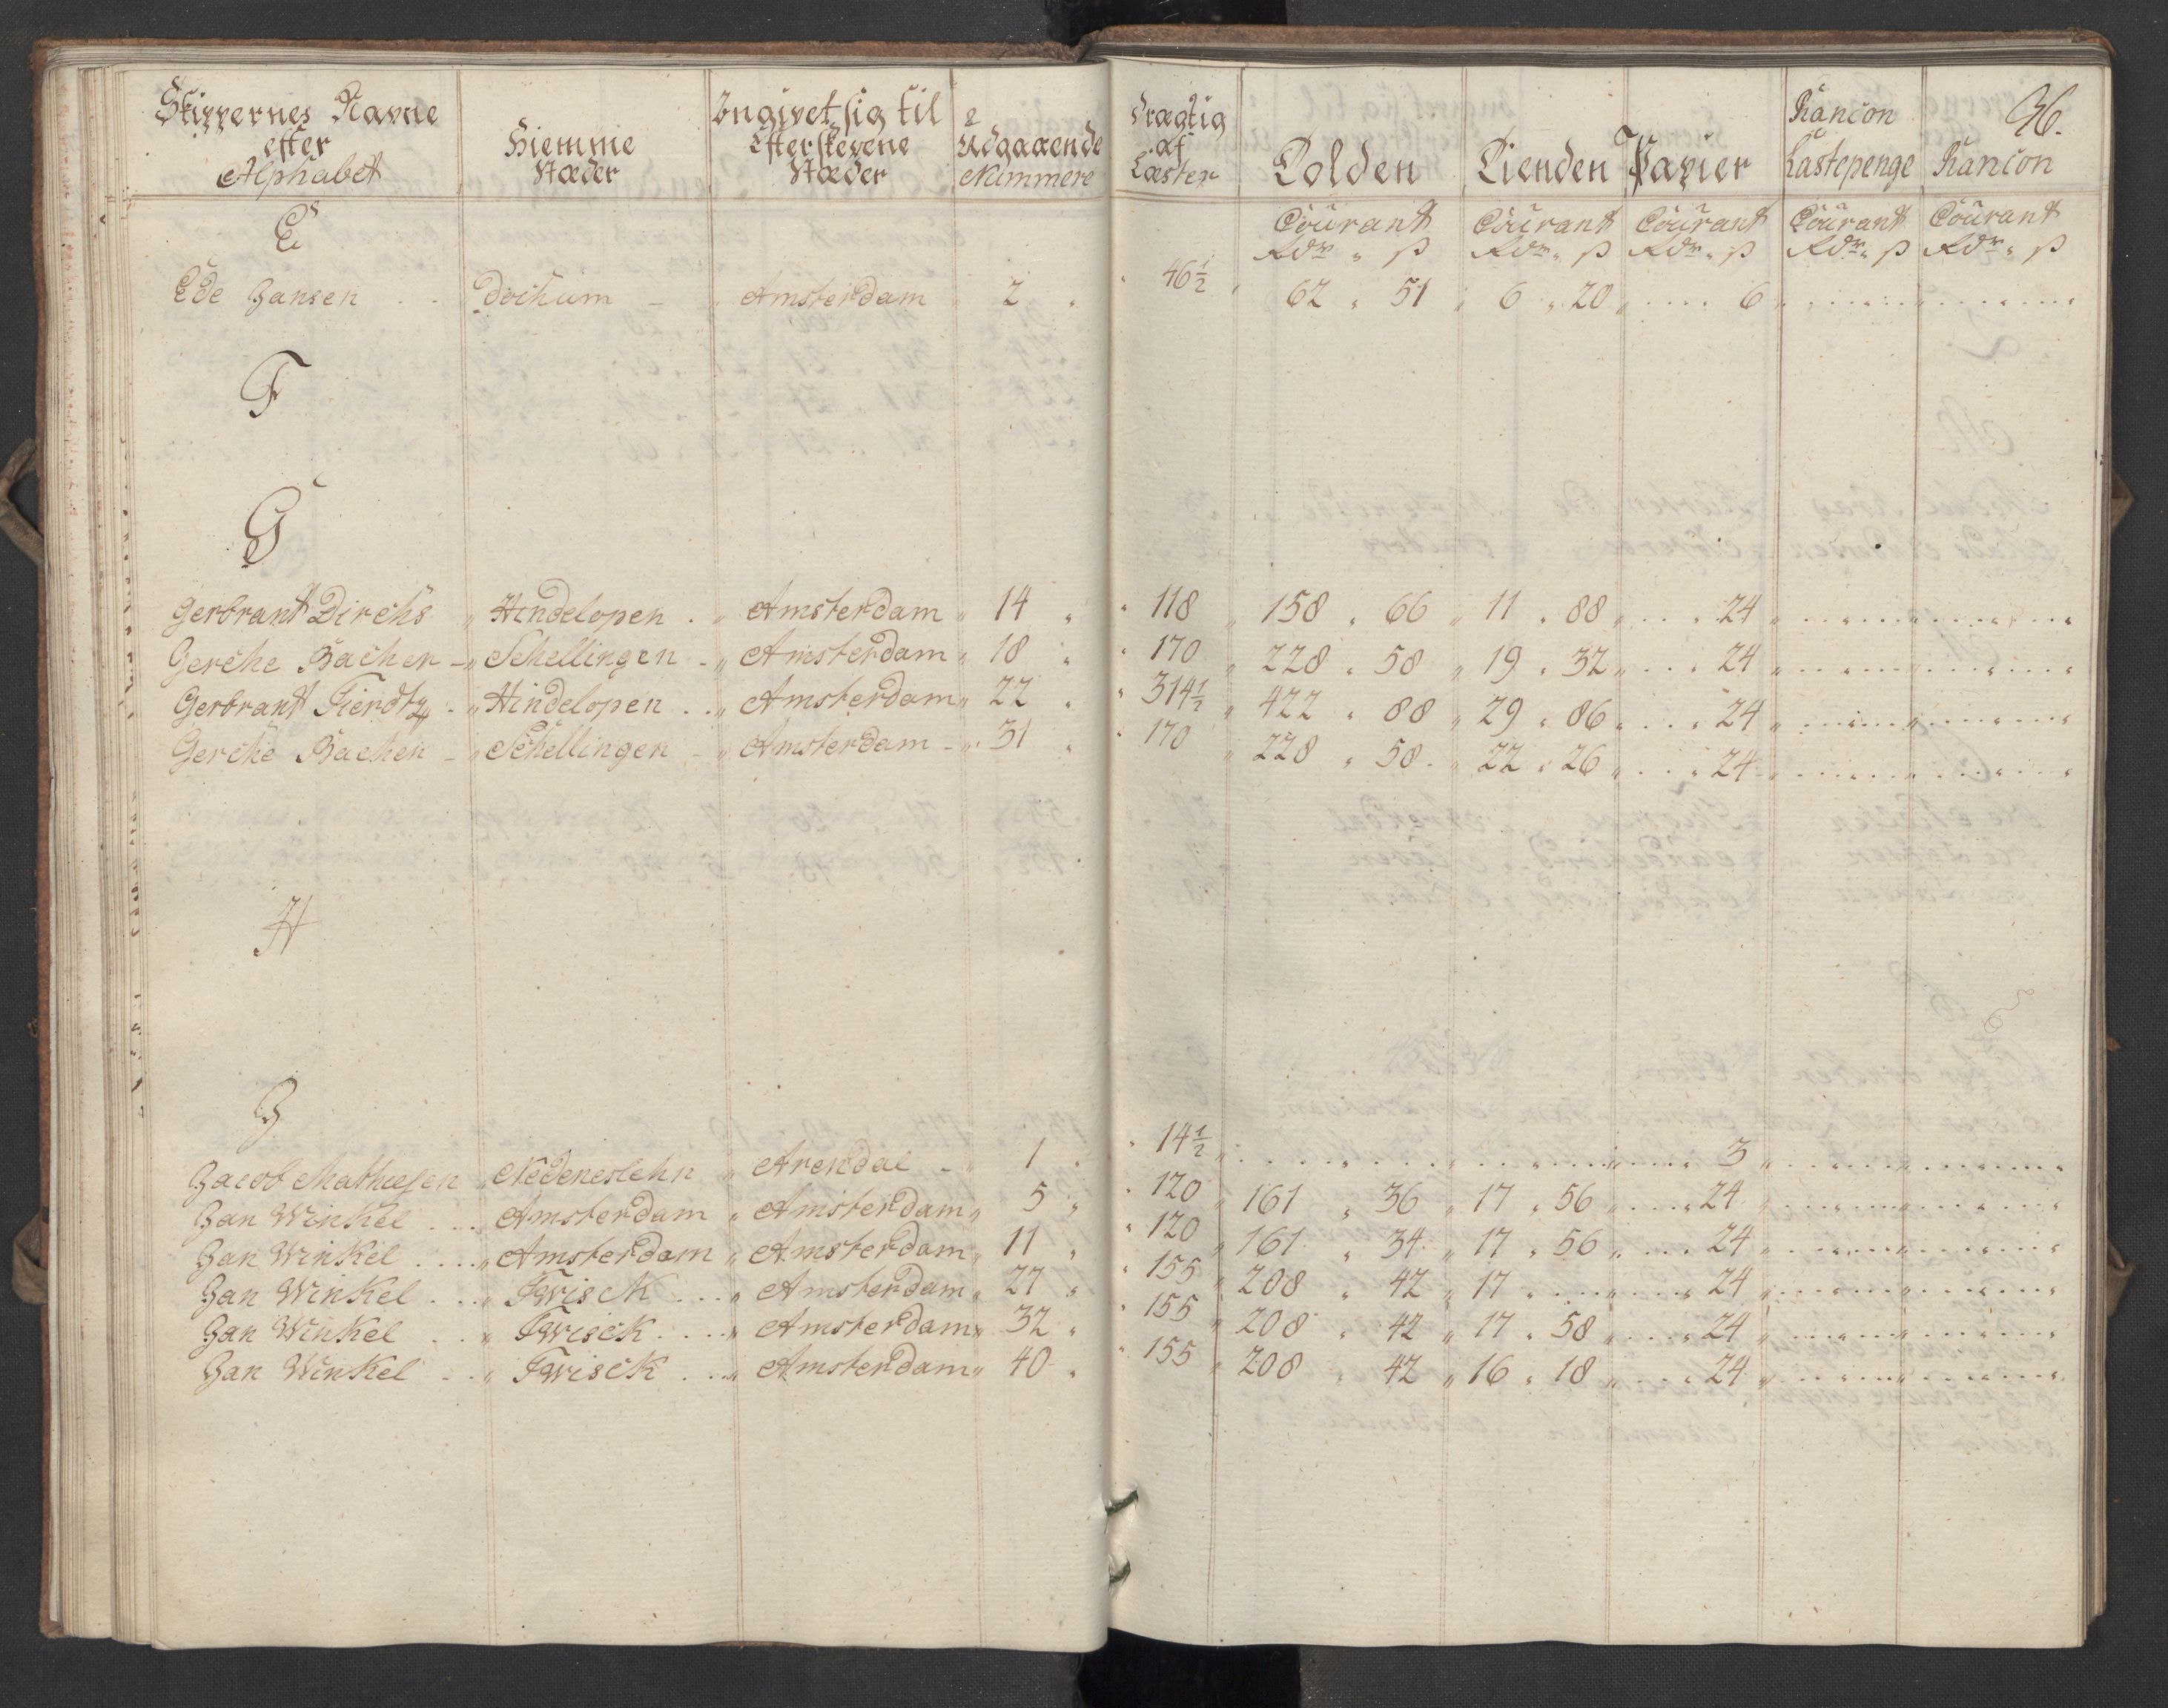 Skippernes Navne efter Alphabet | Hiemme Stæder | Angivet sig til Efterskrevene Stæder | Udgaaende Nummere | Drægtig af Læster | Tolden | Tienden | Papier | Rancon Lastepenge | Rancon
96.
Courant Rdr ß | Courant Rdr ß | Courant Rdr ß | Courant Rdr ß | Courant Rdr ß
E
Ede Jansen | Dochum | Amsterdam | 2 | 46½ | 62 " 51 | 6 " 20 | 6
F
G
Gerbrant Dirchs | Hindelopen | Amsterdam | 14 | 118 | 158 " 66 | 11 " 88 | 24
Gerche Backer | Schellingen | Amsterdam | 18 | 170 | 228 " 58 | 19 " 32 | 24
Gerbrant Tierdtz | Hindelopen | Amsterdam | 22 | 314½ | 422 " 88 | 29 " 86 | 24
Gerche Backer | Schellingen | Amsterdam | 31 | 170 | 228 " 58 | 22 " 26 | 24
H
J
Jacob Mathiesen | Nedeneslehn | Arendal | 1 | 14½ | 3
Jan Winkel | Amsterdam | Amsterdam | 5 | 120 | 161 " 36 | 17 " 56 | 24
Jan Winkel | Amsterdam | Amsterdam | 11 | 120 | 161 " 34 | 17 " 56 | 24
Jan Winkel | Twisck | Amsterdam | 27 | 155 | 208 " 42 | 17 | 24
Jan Winkel | Twisck | Amsterdam | 32 | 155 | 208 " 42 | 17 " 58 | 24
Jan Winkel | Twisck | Amsterdam | 40 | 155 | 208 " 42 | 16 " 18 | 24